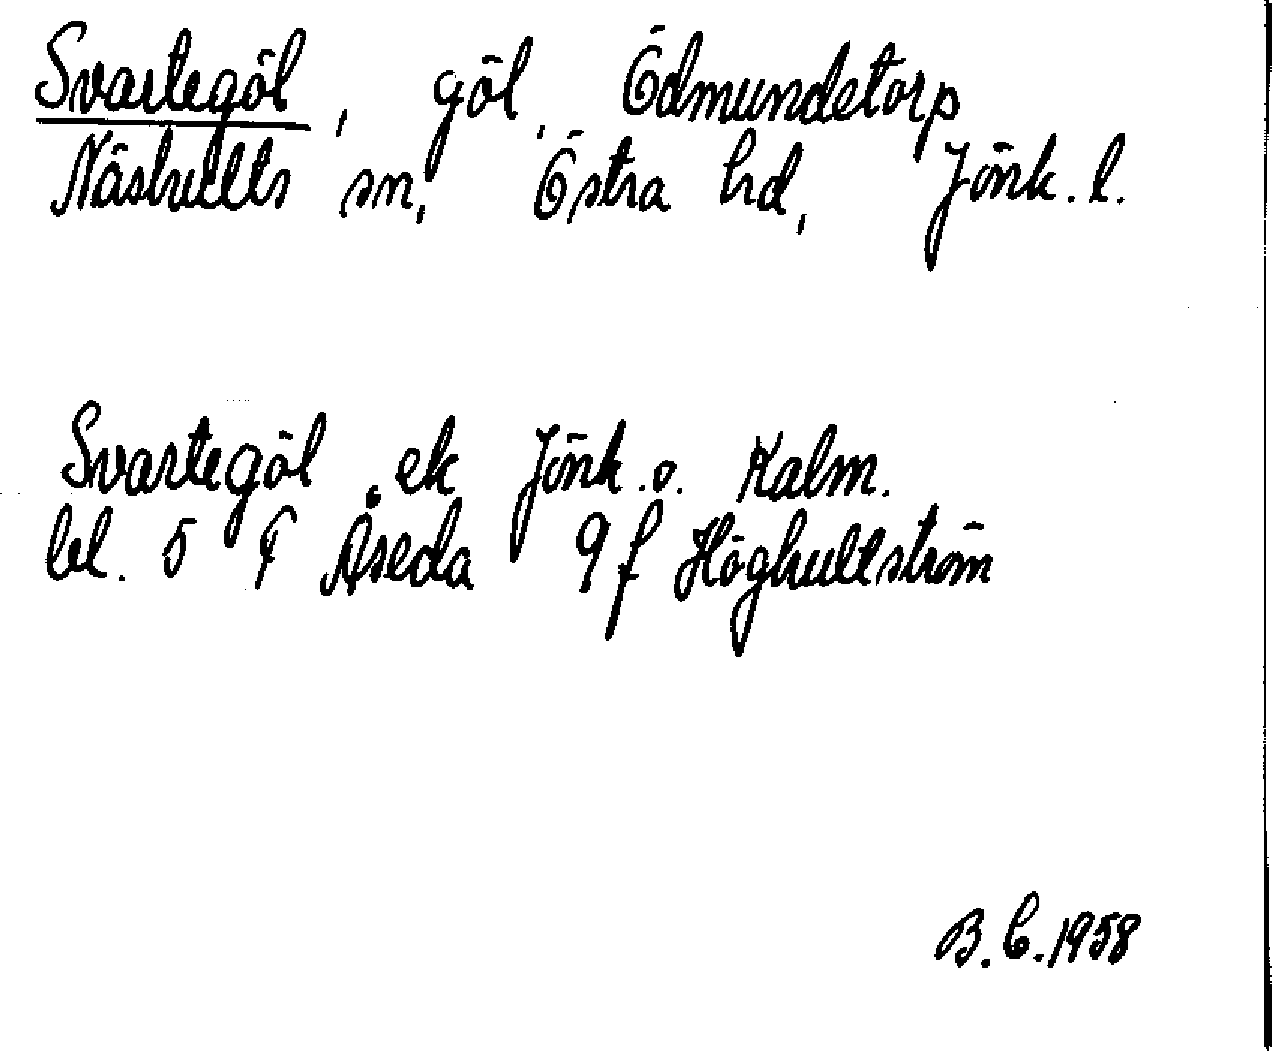 Svartegöl, göl, Ödmundetorp
Näshults sn, Östra hd, Jönk. l.
Svartegöl. ek Jönk. o. Kalm.
bl. 5 F Åseda 9 f Höghultström
B. C. 1958